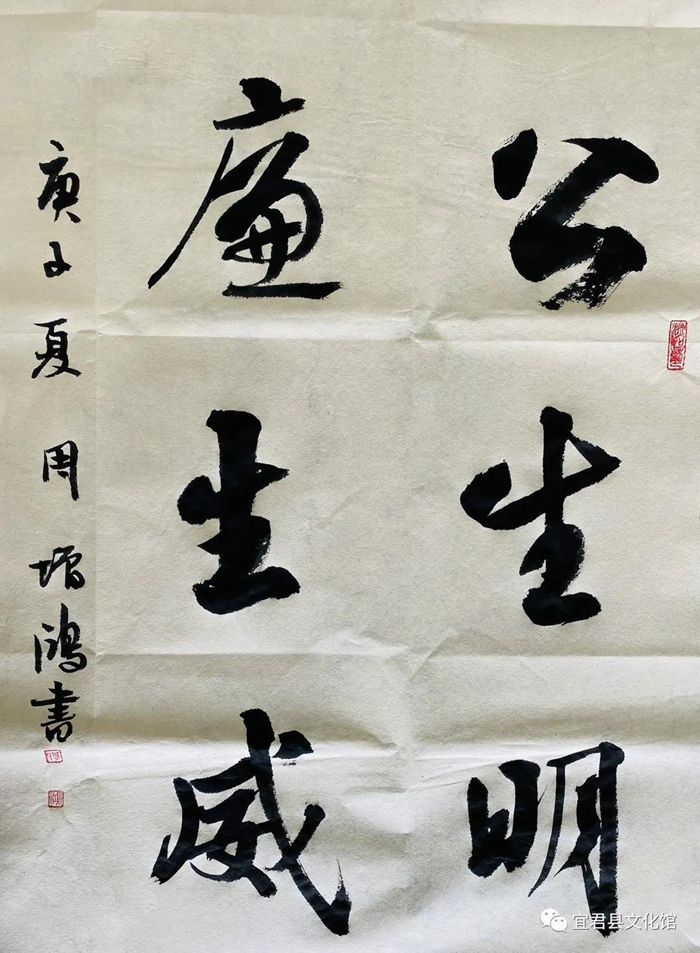 公生明
廉生威
庚子夏 周增鸿书
宜君县文化馆